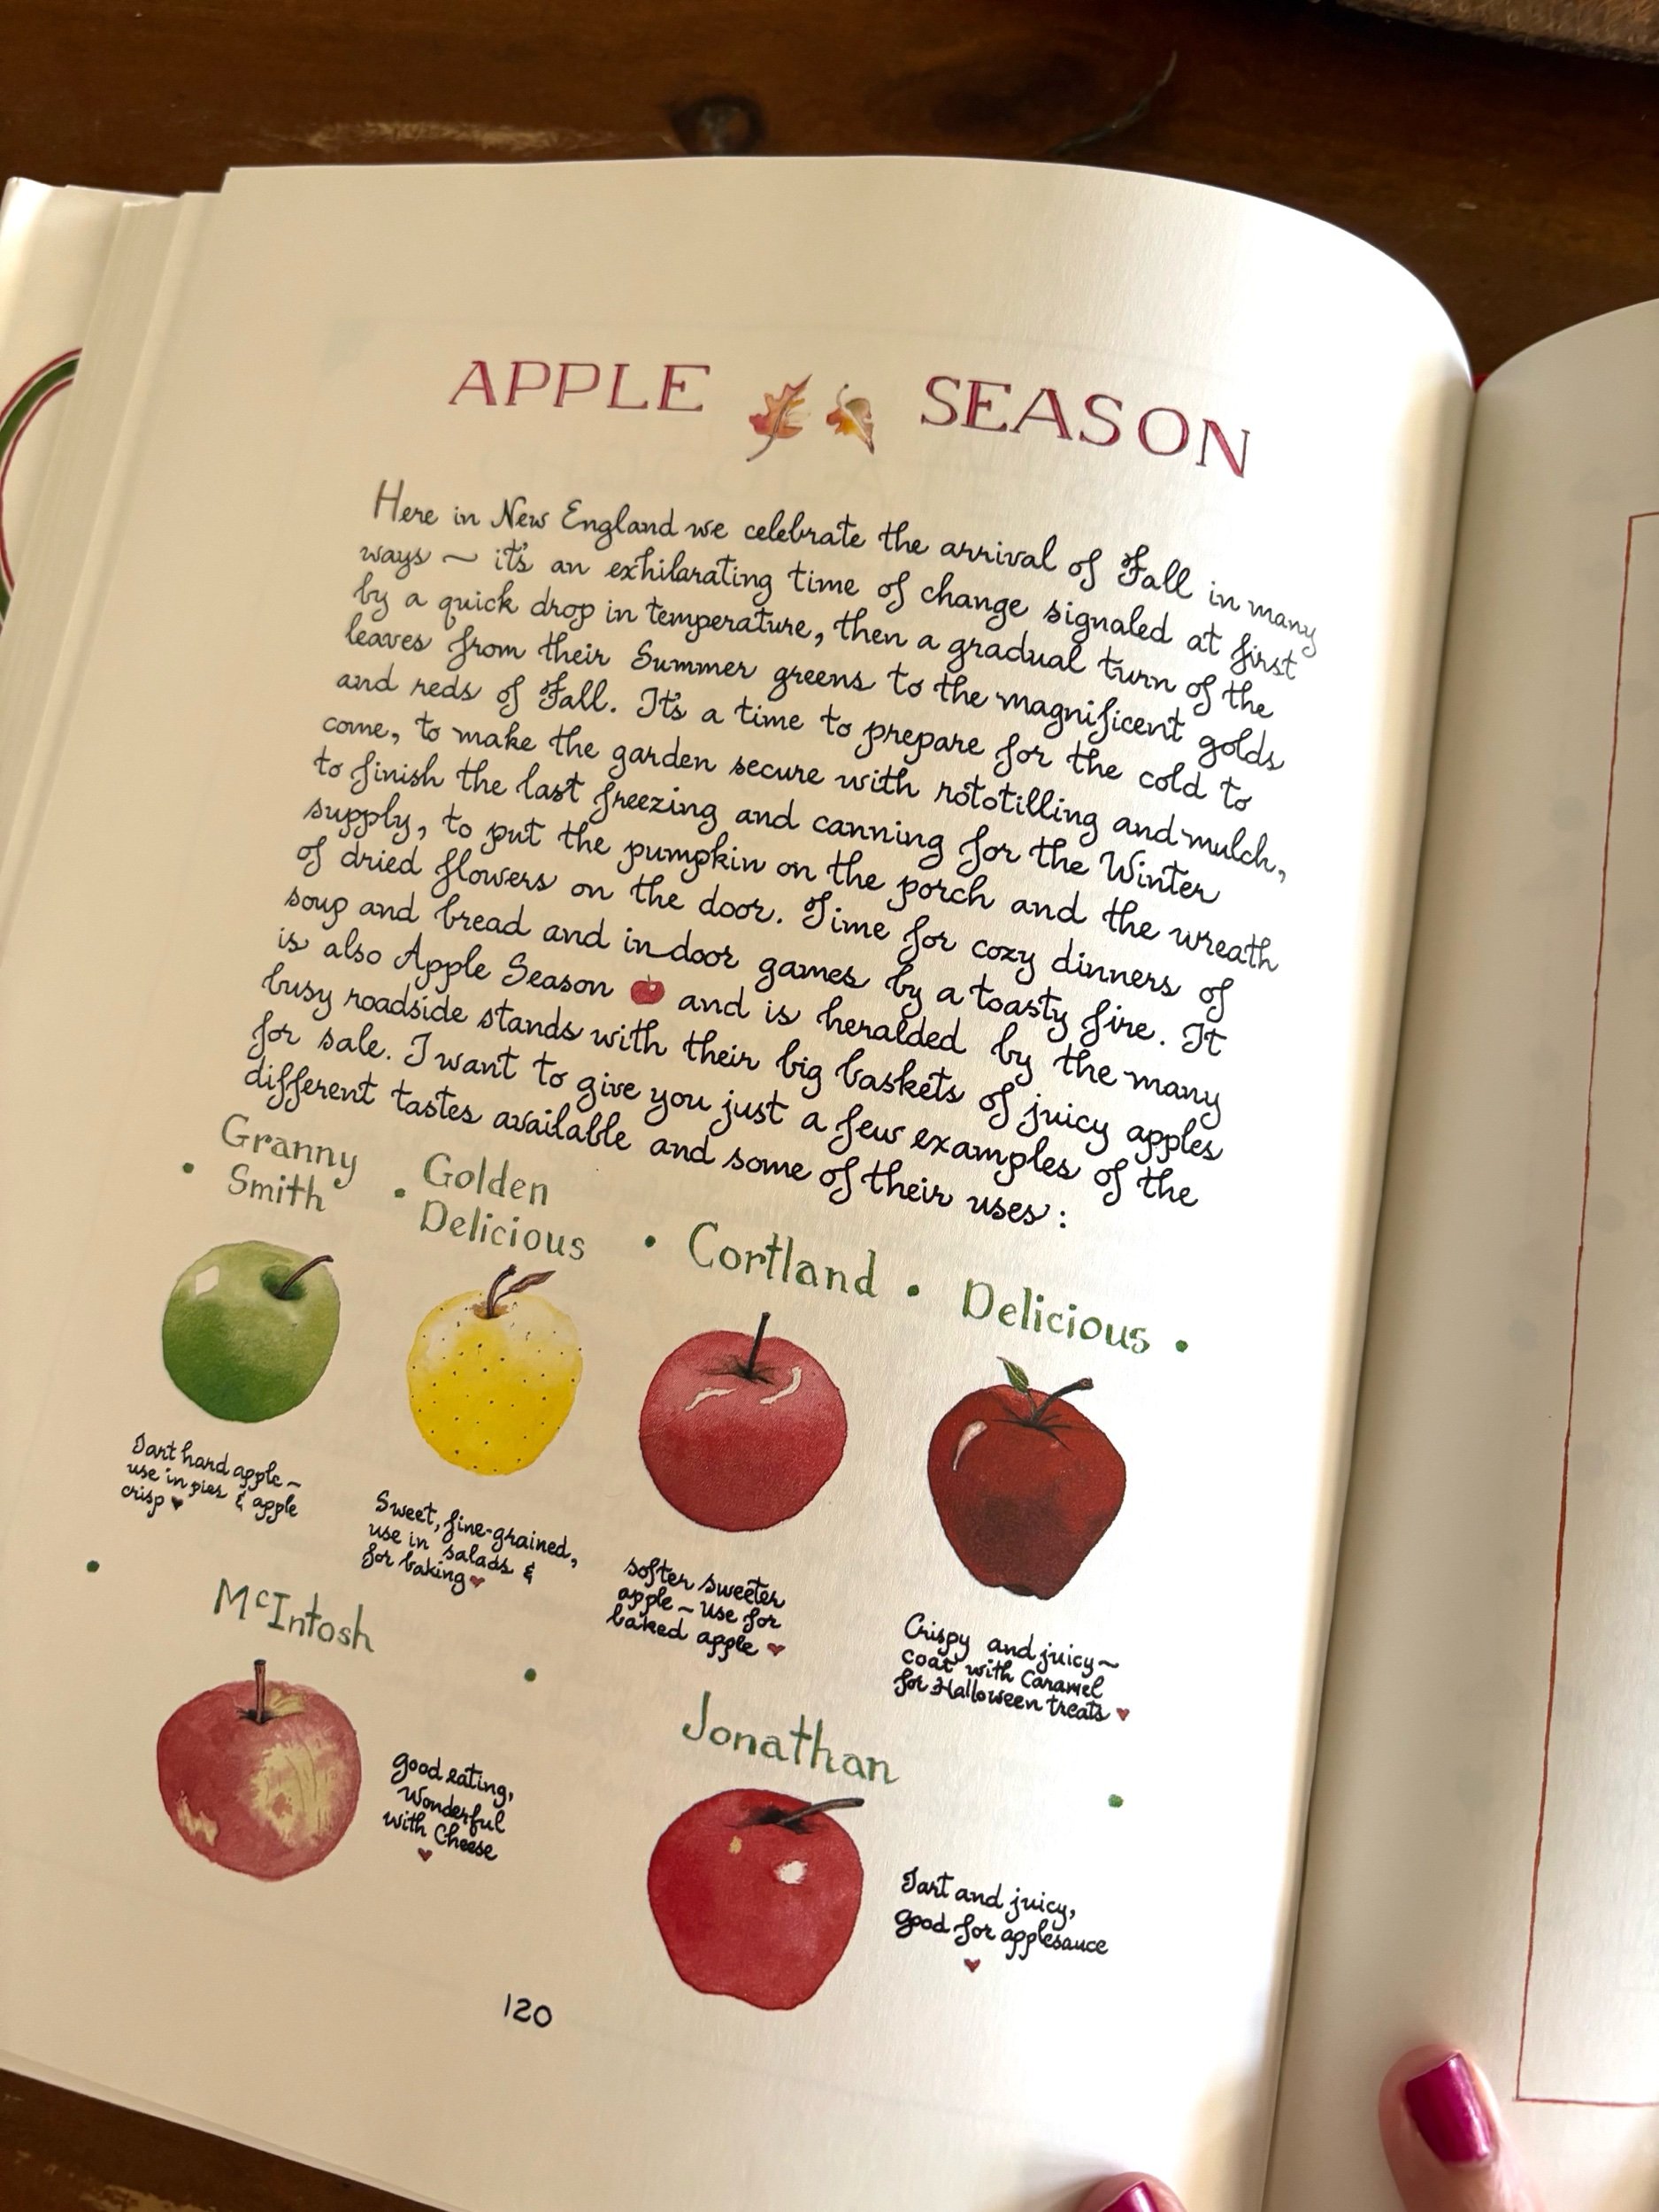 APPLE SEASON
Here in New England we celebrate the arrival of Fall in many
ways ~ it's an exhilarating time of change signaled at first
by a quick drop in temperature, then a gradual turn of the
leaves from their Summer greens to the magnificent golds
and reds of Fall. It's a time to prepare for the cold to
come, to make the garden secure with rototilling and mulch,
to finish the last freezing and canning for the Winter
supply, to put the pumpkin on the porch and the wreath
of dried flowers on the door. Time for cozy dinners of
soup and bread and indoor games by a toasty fire. It
is also Apple Season and is heralded by the many
busy roadside stands with their big baskets of juicy apples
for sale. I want to give you just a few examples of the
different tastes available and some of their uses :
• Granny
Smith
Tart hard apple ~
use in pies & apple
crisp ♥
• Golden
Delicious
Sweet, fine-grained,
use in salads &
for baking ♥
• Cortland •
softer sweeter
apple ~ Use for
baked apple ♥
Delicious •
Crispy and juicy ~
coat with Caramel
for Halloween treats ♥
• McIntosh •
good eating,
Wonderful
with Cheese
♥
Jonathan •
Tart and juicy,
good for applesauce
♥
120